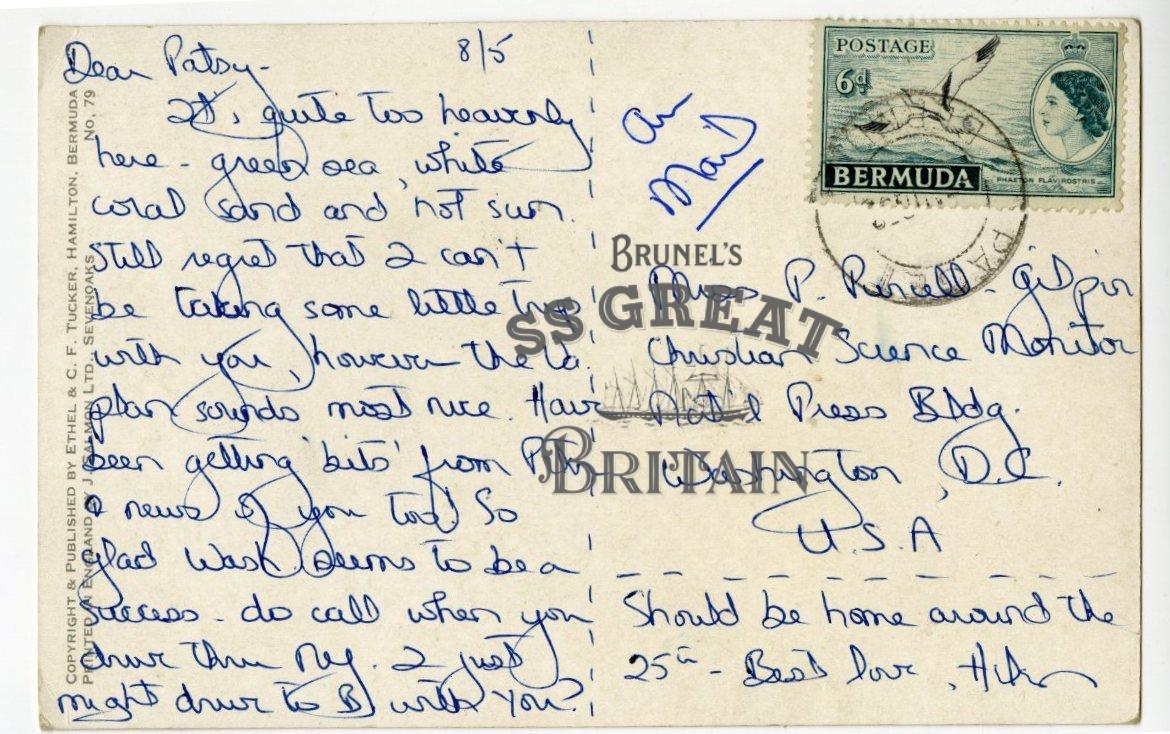 8/5
Dear Patsy-
It's quite too heavenly
here - green sea, white
coral sand and hot sun.
Still regret that I can't
be taking some little trips
with you, however the Va.
plan sounds most nice. Have
been getting 'bits' from
& news of you too! So
glad Wash. seems to be a
success - do call when you
drive thru NY. I just
might drive to B with you?
Air
Mail
Miss P. Purcell - Gilpin
Christian Science Monitor
Nat'l Press Bldg.
Washington, D.C.
U.S.A
Should be home around the
25th - Best love,
POSTAGE
6d
BERMUDA
PHAETON FLAVIROSTRIS
BRUNEL'S
SS GREAT
BRITAIN
COPYRIGHT & PUBLISHED BY ETHEL & C. F. TUCKER, HAMILTON, BERMUDA
PRINTED IN ENGLAND BY J. SALMON LTD. SEVENOAKS No. 79